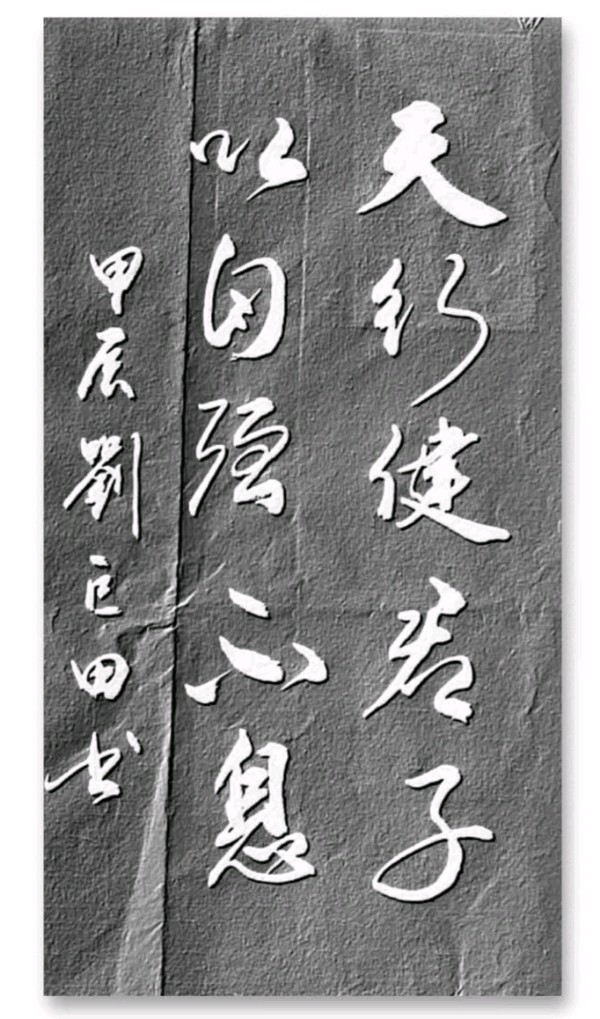 天行健君子
以自强不息
甲辰劉巨田书